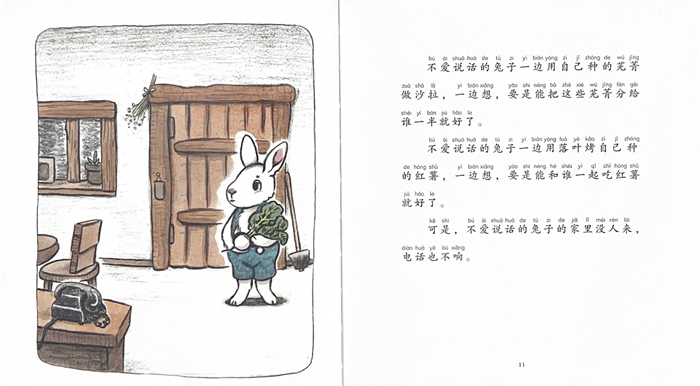 bú ài shuō huà de tù zi yì biān yòng zì jǐ zhòng de wú jīng
不爱说话的兔子一边用自己种的芜菁
zuò shā lā yì biān xiǎng yào shi néng bǎ zhè xiē wú jīng fēn gěi
做沙拉，一边想，要是能把这些芜菁分给
shéi yí bàn jiù hǎo le
谁一半就好了。
bú ài shuō huà de tù zi yì biān yòng luò yè kǎo zì jǐ zhòng
不爱说话的兔子一边用落叶烤自己种
de hóng shǔ yì biān xiǎng yào shi néng hé shéi yì qǐ chī hóng shǔ
的红薯，一边想，要是能和谁一起吃红薯
jiù hǎo le
就好了。
kě shì bú ài shuō huà de tù zi de jiā lǐ méi rén lái
可是，不爱说话的兔子的家里没人来，
diàn huà yě bù xiǎng
电话也不响。
11